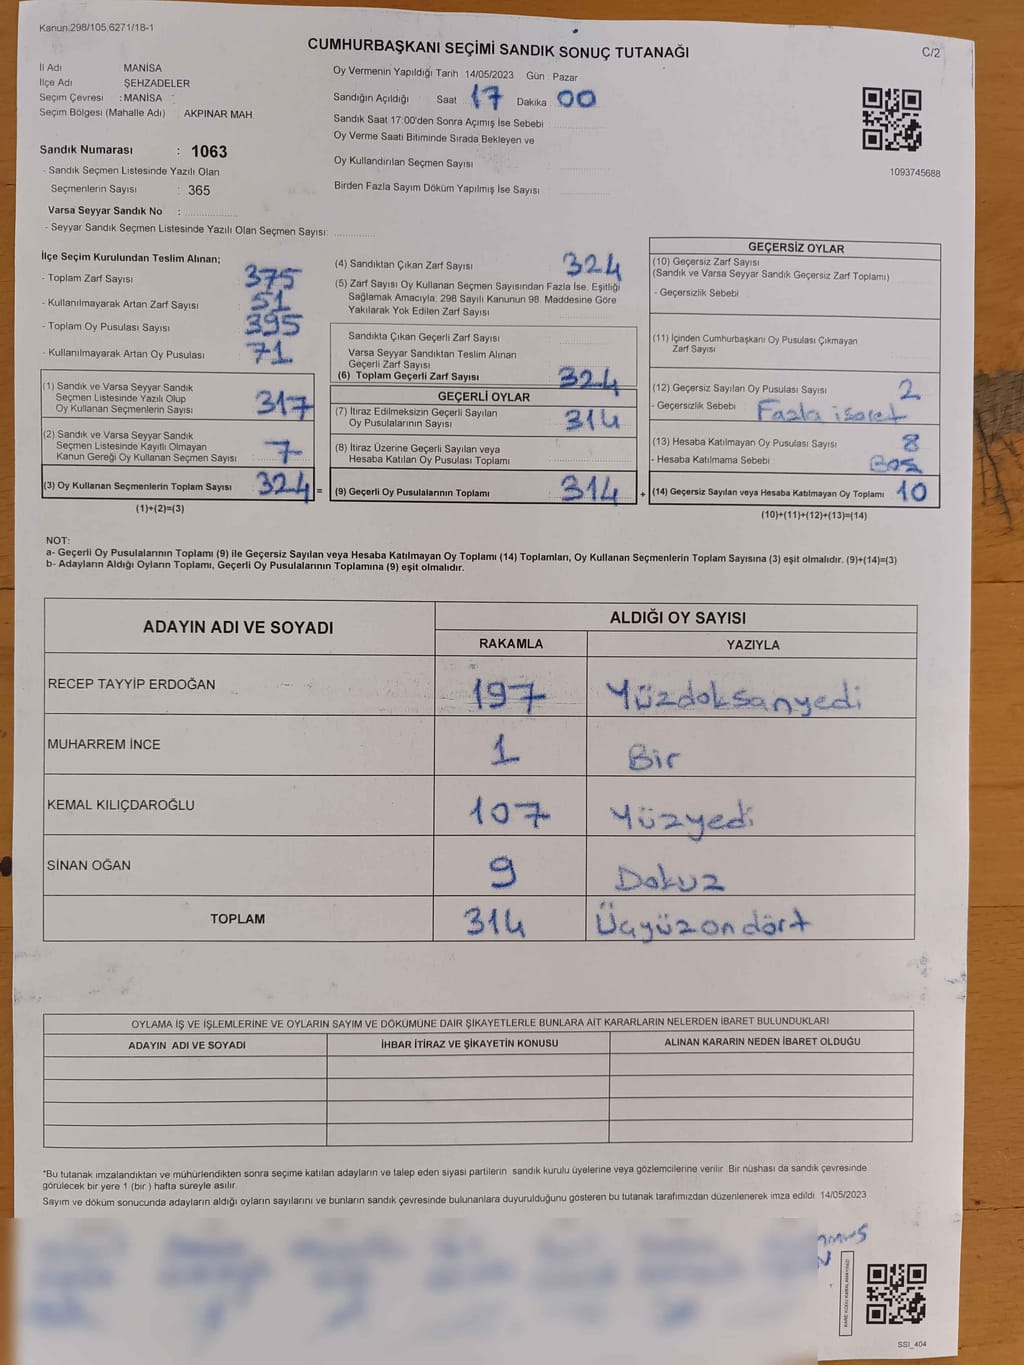 Kanun:298/105;6271/18-1
CUMHURBAŞKANI SEÇİMİ SANDIK SONUÇ TUTANAĞI
C/2
İl Adı MANİSA
İlçe Adı ŞEHZADELER
Seçim Çevresi : MANİSA
Seçim Bölgesi (Mahalle Adı) AKPINAR MAH.
Sandık Numarası : 1063
- Sandık Seçmen Listesinde Yazılı Olan
Seçmenlerin Sayısı : 365
Varsa Seyyar Sandık No :
- Seyyar Sandık Seçmen Listesinde Yazılı Olan Seçmen Sayısı:
Oy Vermenin Yapıldığı Tarih : 14/05/2023 Gün : Pazar
Sandığın Açıldığı Saat 17 Dakika 00
Sandık Saat 17:00'den Sonra Açımış İse Sebebi
Oy Verme Saati Bitiminde Sırada Bekleyen ve
Oy Kullandırılan Seçmen Sayısı
Birden Fazla Sayım Döküm Yapılmış İse Sayısı
1093745688
İlçe Seçim Kurulundan Teslim Alınan;
- Toplam Zarf Sayısı 375
- Kullanılmayarak Artan Zarf Sayısı 51
- Toplam Oy Pusulası Sayısı 395
- Kullanılmayarak Artan Oy Pusulası 71
(1) Sandık ve Varsa Seyyar Sandık
Seçmen Listesinde Yazılı Olup
Oy Kullanan Seçmenlerin Sayısı 317
(2) Sandık ve Varsa Seyyar Sandık
Seçmen Listesinde Kayıtlı Olmayan
Kanun Gereği Oy Kullanan Seçmen Sayısı 7
(3) Oy Kullanan Seçmenlerin Toplam Sayısı 324 =
(1)+(2)=(3)
(4) Sandıktan Çıkan Zarf Sayısı 324
(5) Zarf Sayısı Oy Kullanan Seçmen Sayısından Fazla İse, Eşitliği
Sağlamak Amacıyla; 298 Sayılı Kanunun 98. Maddesine Göre
Yakılarak Yok Edilen Zarf Sayısı
Sandıkta Çıkan Geçerli Zarf Sayısı
Varsa Seyyar Sandıktan Teslim Alınan
Geçerli Zarf Sayısı
(6) Toplam Geçerli Zarf Sayısı 324
GEÇERLİ OYLAR
(7) İtiraz Edilmeksizin Geçerli Sayılan
Oy Pusulasının Sayısı 314
(8) İtiraz Üzerine Geçerli Sayılan veya
Hesaba Katılan Oy Pusulası Toplamı
(9) Geçerli Oy Pusulalarının Toplamı 314 +
GEÇERSİZ OYLAR
(10) Geçersiz Zarf Sayısı
(Sandık ve Varsa Seyyar Sandık Geçersiz Zarf Toplamı)
- Geçersizlik Sebebi
(11) İçinden Cumhurbaşkanı Oy Pusulası Çıkmayan
Zarf Sayısı
(12) Geçersiz Sayılan Oy Pusulası Sayısı 2
- Geçersizlik Sebebi Fazla işaret
(13) Hesaba Katılmayan Oy Pusulası Sayısı 8
- Hesaba Katılmama Sebebi Boş
(14) Geçersiz Sayılan veya Hesaba Katılmayan Oy Toplamı 10
(10)+(11)+(12)+(13)=(14)
NOT:
a- Geçerli Oy Pusulalarının Toplamı (9) ile Geçersiz Sayılan veya Hesaba Katılmayan Oy Toplamı (14) Toplamları, Oy Kullanan Seçmenlerin Toplam Sayısına (3) eşit olmalıdır. (9)+(14)=(3)
b- Adayların Aldığı Oyların Toplamı, Geçerli Oy Pusulalarının Toplamına (9) eşit olmalıdır.
ADAYIN ADI VE SOYADI
ALDIĞI OY SAYISI
RAKAMLA YAZIYLA
RECEP TAYYİP ERDOĞAN 197 Yüzdoksanyedi
MUHARREM İNCE 1 Bir
KEMAL KILIÇDAROĞLU 107 Yüzyedi
SİNAN OĞAN 9 Dokuz
TOPLAM 314 Üçyüzondört
OYLAMA İŞ VE İŞLEMLERİNE VE OYLARIN SAYIM VE DÖKÜMÜNE DAİR ŞİKAYETLERLE BUNLARA AİT KARARLARIN NELERDEN İBARET BULUNDUKLARI
ADAYIN ADI VE SOYADI İHBAR İTİRAZ VE ŞİKAYETİN KONUSU ALINAN KARARIN NEDEN İBARET OLDUĞU
*Bu tutanak imzalandıktan ve mühürlendikten sonra seçime katılan adayların ve talep eden siyasi partilerin sandık kurulu üyelerine veya gözlemcilerine verilir. Bir nüshası da sandık çevresinde
görülecek bir yere 1 (bir) hafta süreyle asılır.
Sayım ve döküm sonucunda adayların aldığı oyların sayılarını ve bunların sandık çevresinde bulunanlara duyurulduğunu gösteren bu tutanak tarafımızdan düzenlenerek imza edildi. 14/05/2023
SSI_404